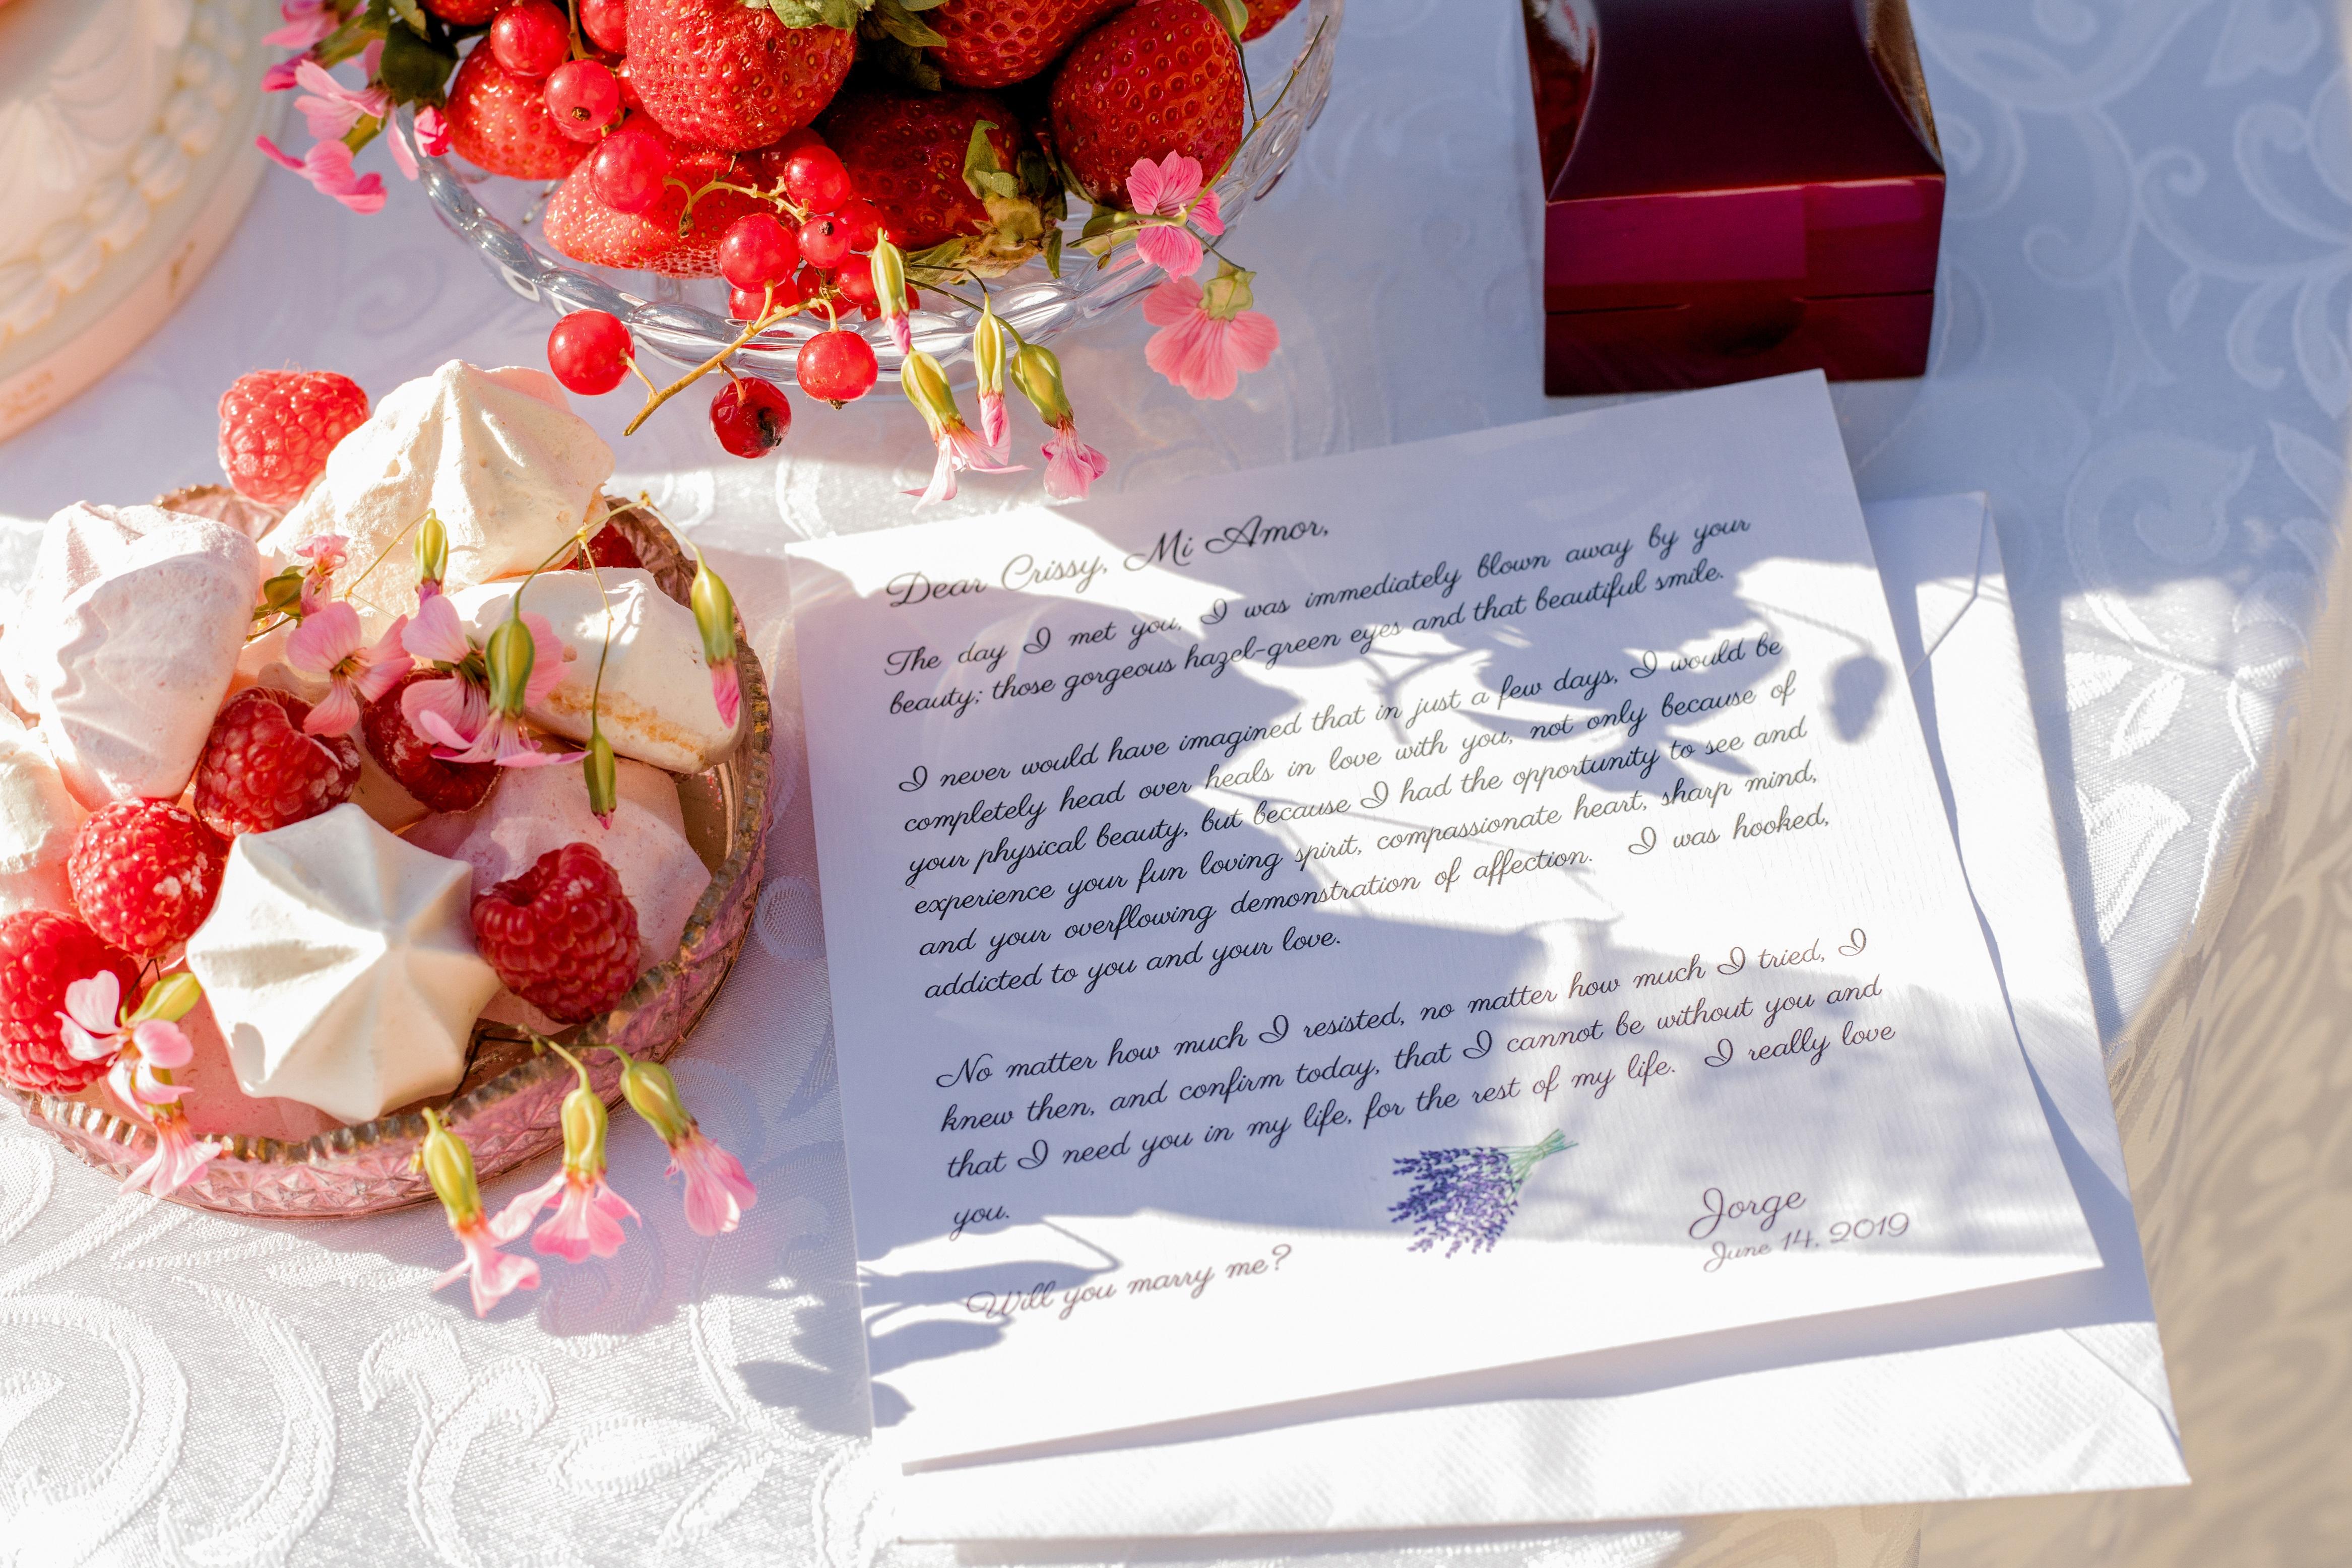 Dear Crissy, Mi Amor,
The day I met you, I was immediately blown away by your
beauty; those gorgeous hazel-green eyes and that beautiful smile.
I never would have imagined that in just a few days, I would be
completely head over heals in love with you, not only because of
your physical beauty, but because I had the opportunity to see and
experience your fun loving spirit, compassionate heart, sharp mind,
and your overflowing demonstration of affection. I was hooked,
addicted to you and your love.
No matter how much I resisted, no matter how much I tried, I
knew then, and confirm today, that I cannot be without you and
that I need you in my life, for the rest of my life. I really love
you.
Will you marry me?
Jorge
June 14, 2019